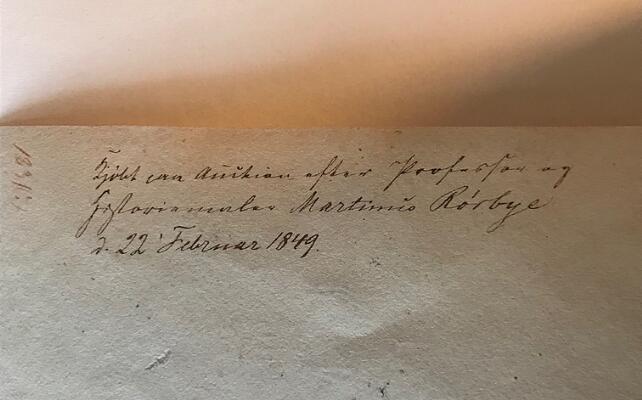 Kjøbt paa Auction efter Professor og
Historiemaler Martinus Rørbye
d. 22 Februar 1849.